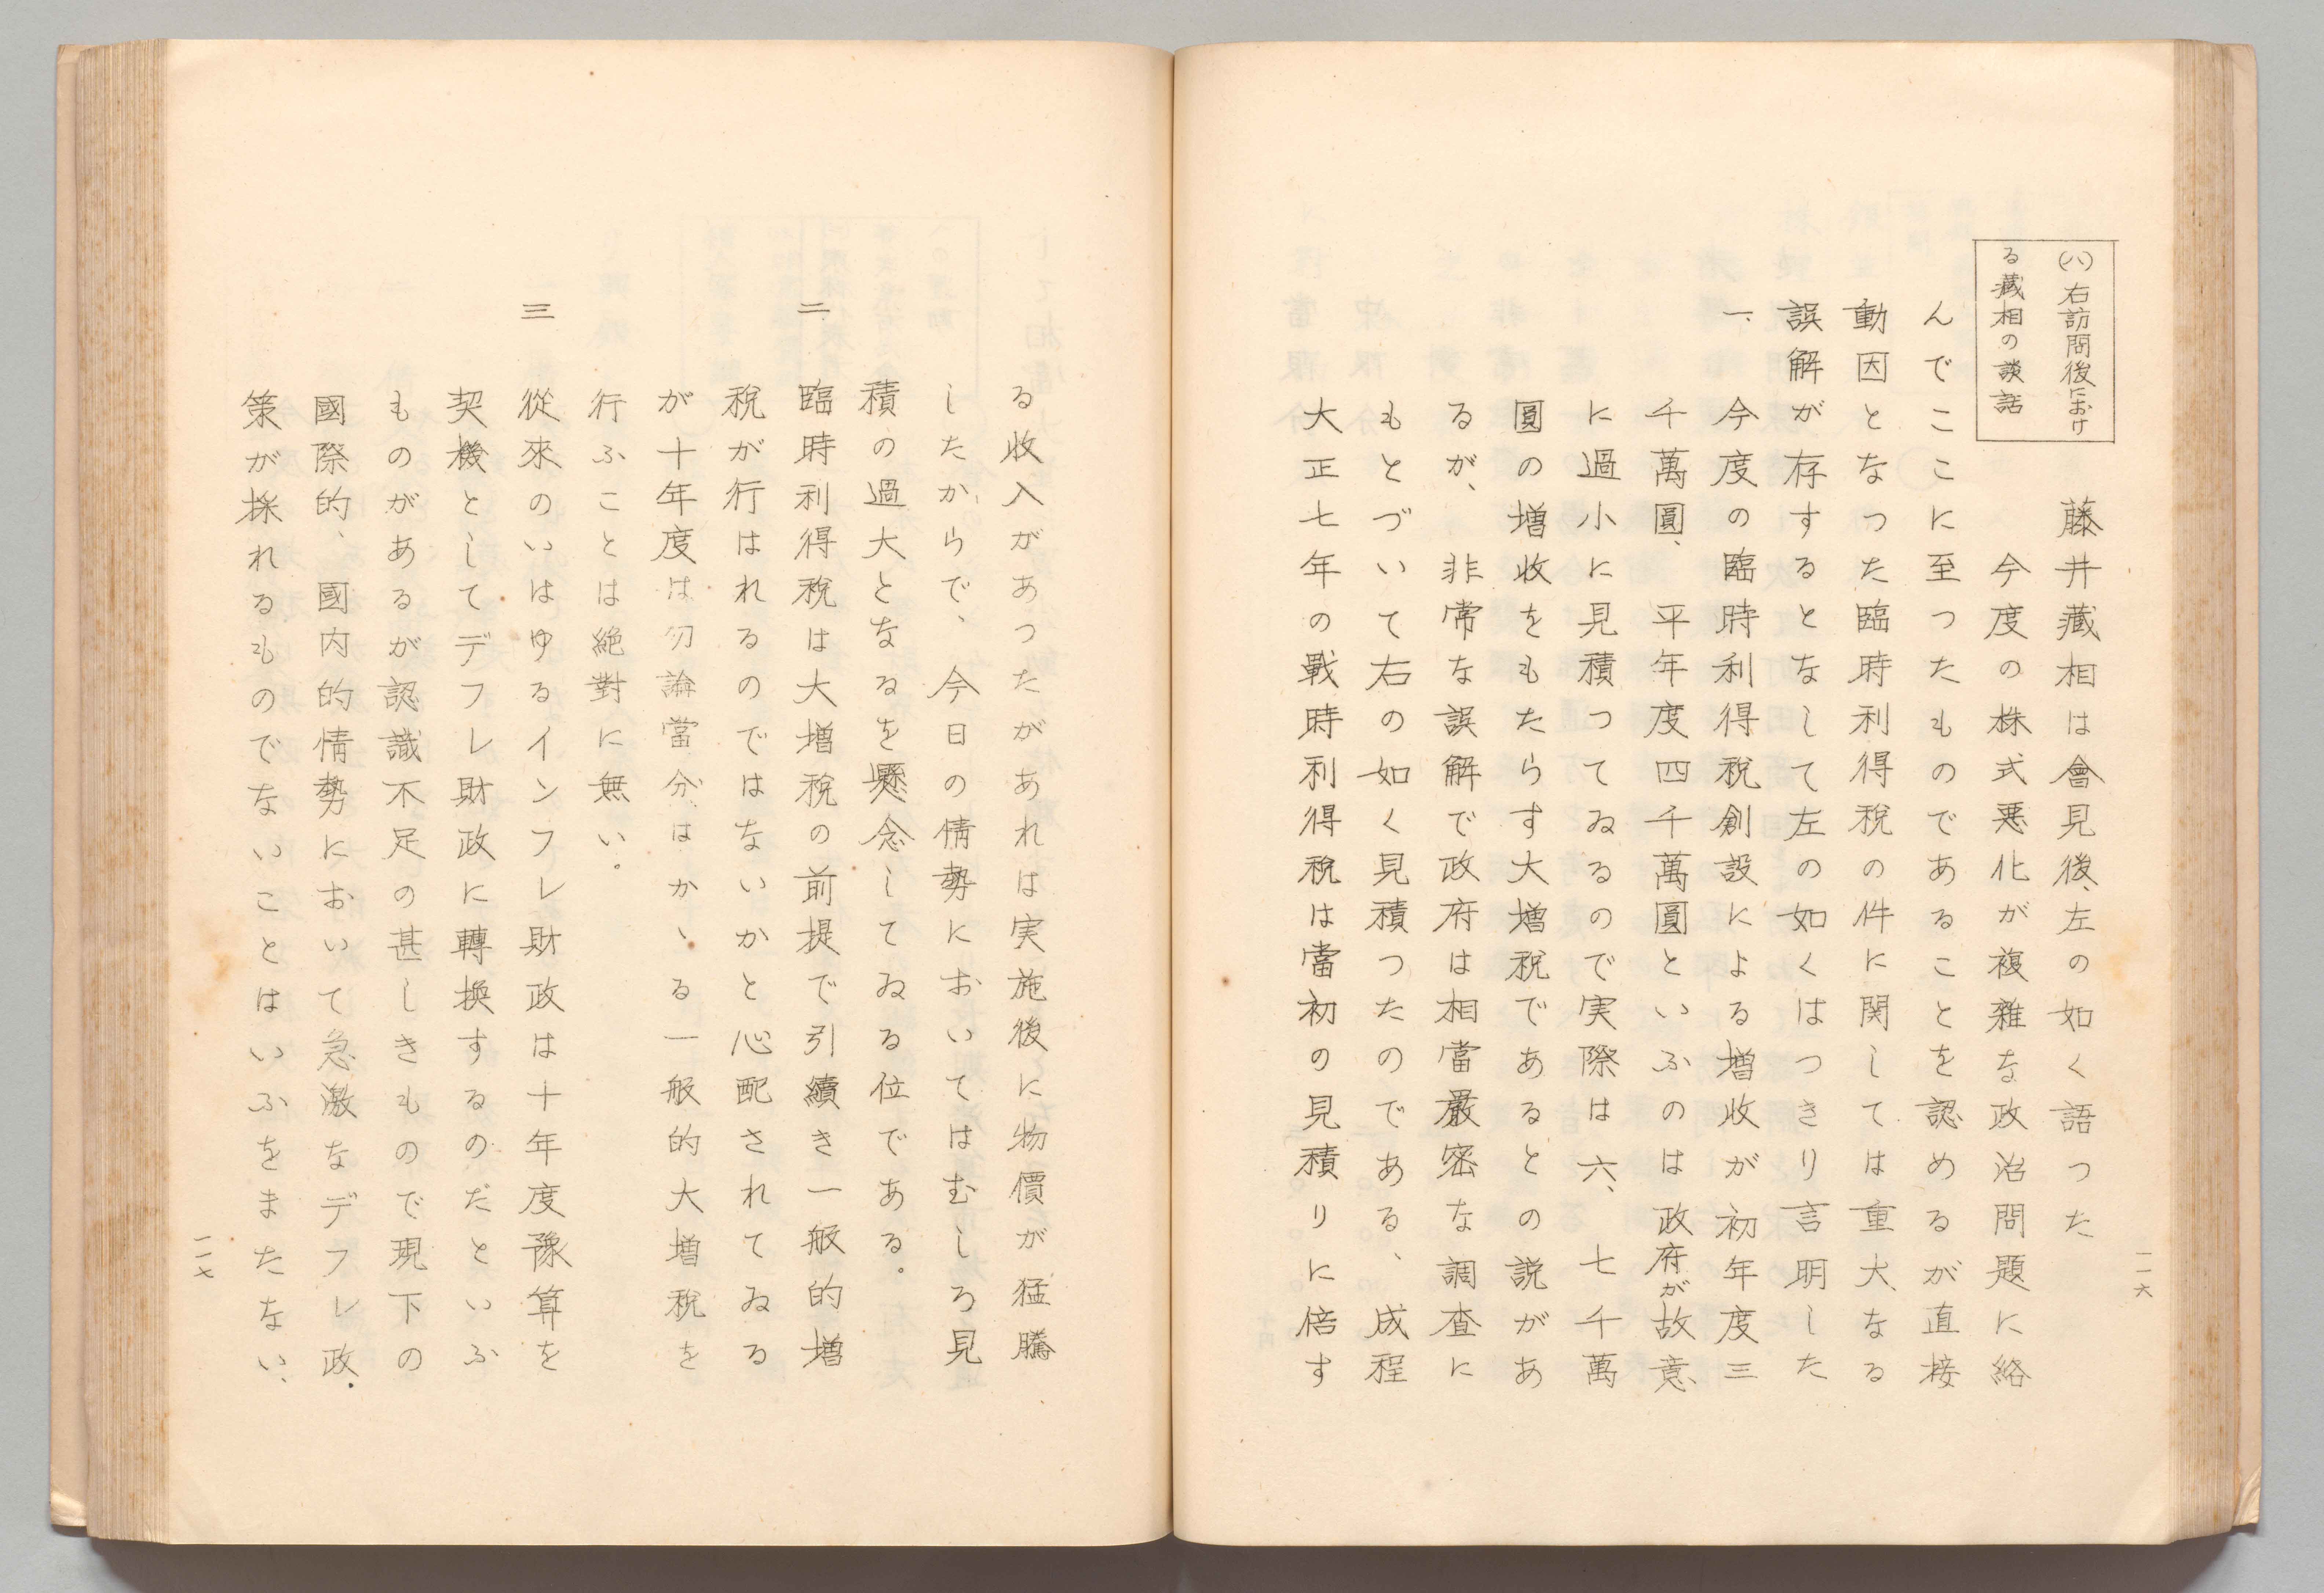 (八)右訪問後におけ
る藏相の談話
藤井藏相は會見後、左の如く語つた
今度の株式悪化が複雜な政治問題に絡
んでここに至つたものであることを認めるが直接
動因となつた臨時利得税の件に関しては重大なる
誤解が存するとなして左の如くはつきり言明した
一、今度の臨時利得税創設による増收が初年度三
千萬圓、平年度四千萬圓といふのは政府が故意
に過小に見積つてゐるので実際は六、七千萬
圓の増收をもたらす大増税であるとの説があ
るが、非常な誤解で政府は相當嚴密な調査に
もとづいて右の如く見積つたのである、成程
大正七年の戰時利得税は當初の見積りに倍す
一一六
る收入があつたがあれは実施後に物價が猛騰
したからで、今日の情勢においてはむしろ見
積の過大となるを懸念してゐる位である。
二 臨時利得税は大増税の前提で引續き一般的増
税が行はれるのではないかと心配されてゐる
が十年度は勿論當分はかゝる一般的大増税を
行ふことは絶對に無い。
三 從來のいはゆるインフレ財政は十年度豫算を
契機としてデフレ財政に轉換するのだといふ
ものがあるが認識不足の甚しきもので現下の
國際的、國内的情勢において急激なデフレ政
策が採れるものでないことはいふをまたない、
一一七